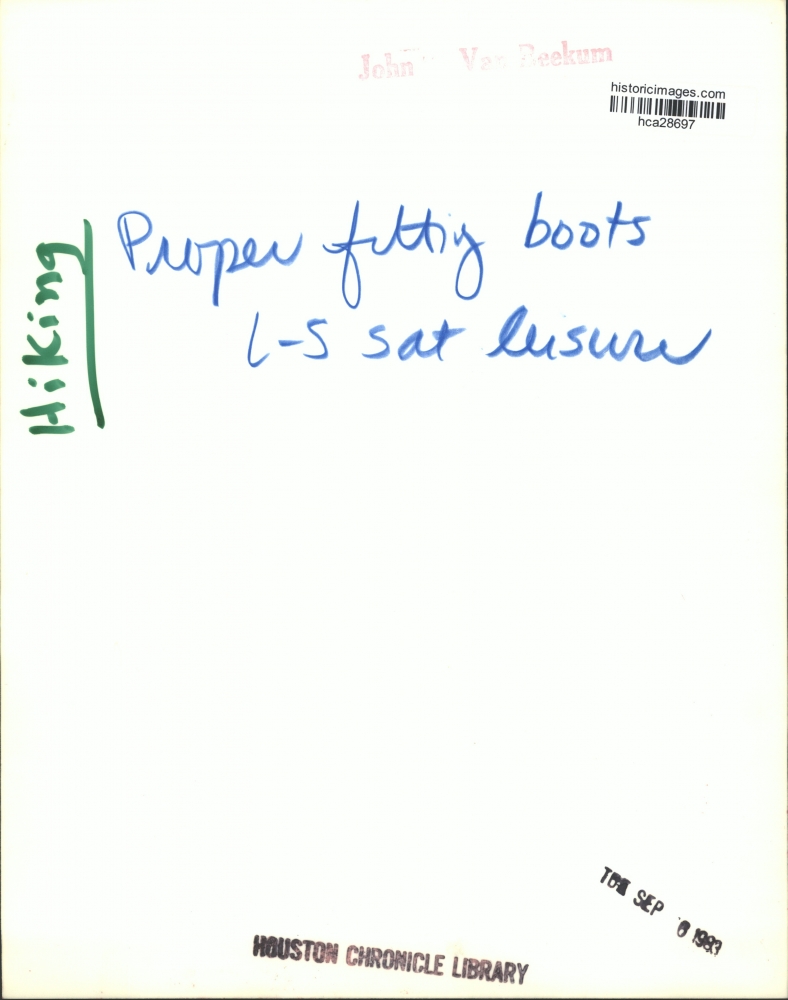 John Van Beekum
historicimages.com
hca28697
Hiking
Proper fitting boots
L-S sat leisure
SEP 6 1983
HOUSTON CHRONICLE LIBRARY